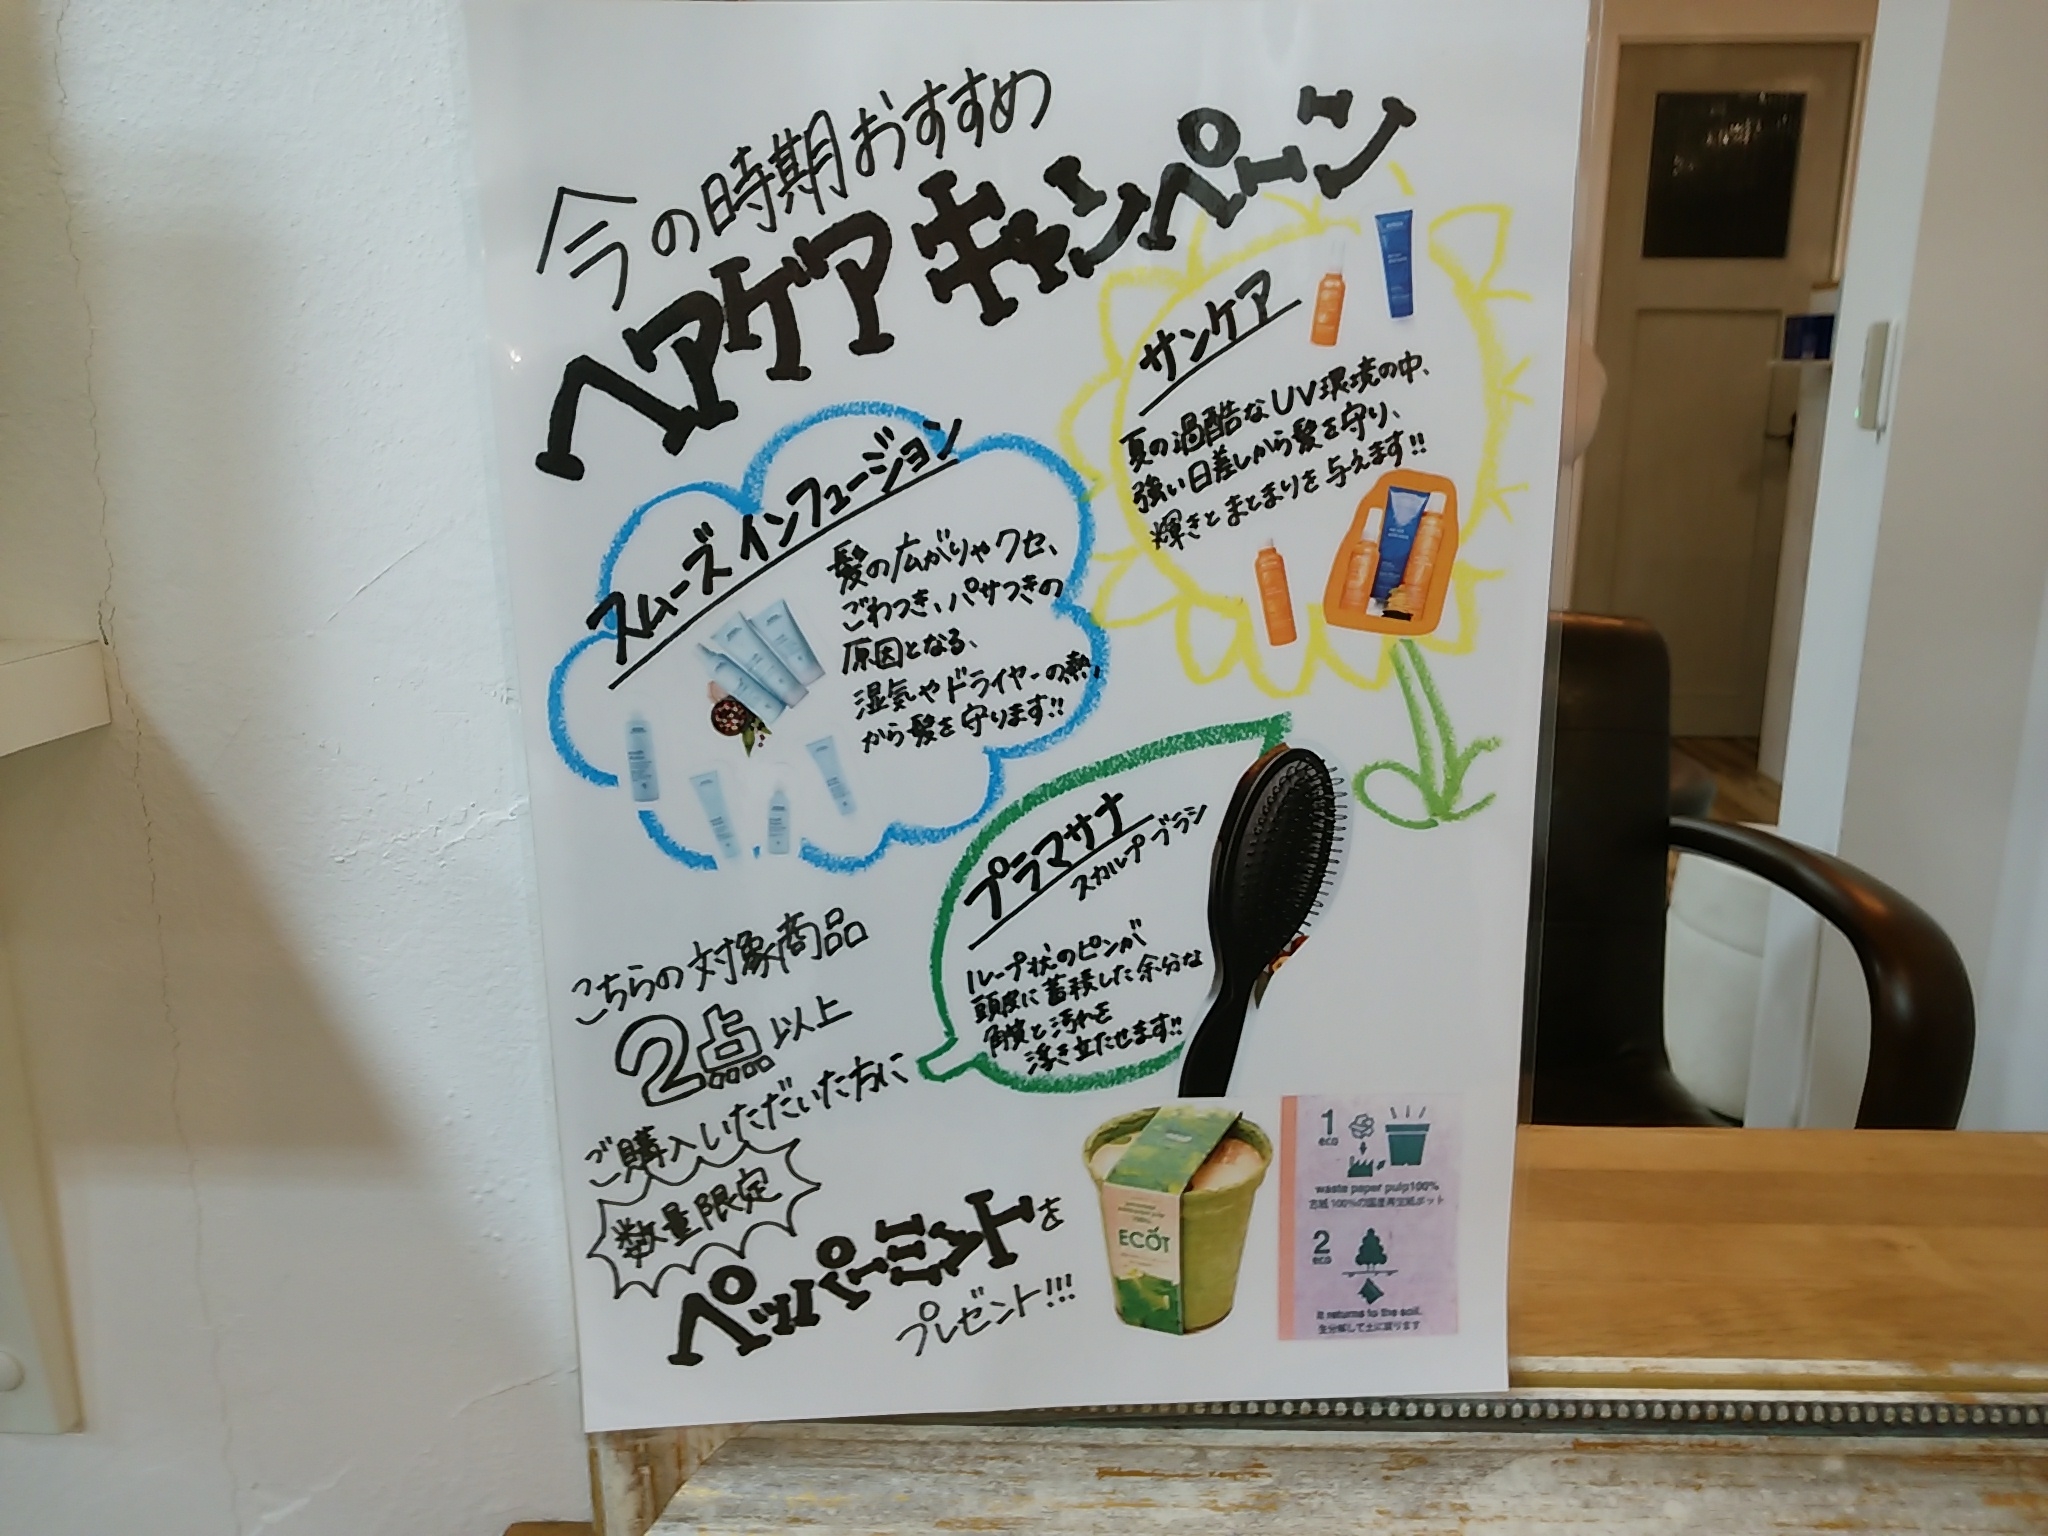 今の時期おすすめ
ヘアケアキャンペーン
サンケア
夏の過酷なUV環境の中、
強い日差しから髪を守り、
輝きとまとまりを与えます!!
スムーズインフュージョン
髪の広がりやクセ、
ごわつき、パサつきの
原因となる、
湿気やドライヤーの熱
から髪を守ります!!
プラマサナ
スカルプブラシ
ループ状のピンが
頭皮に蓄積した余分な
角質と汚れを
浮き立たせます!!
こちらの対象商品
2点以上
ご購入いただいた方に
数量限定
ペパーミントを
プレゼント!!!
ECOT
1
eco
waste paper pulp100%
古紙100%の国産再生紙ポット
2
eco
it returns to the soil.
生分解して土に還ります